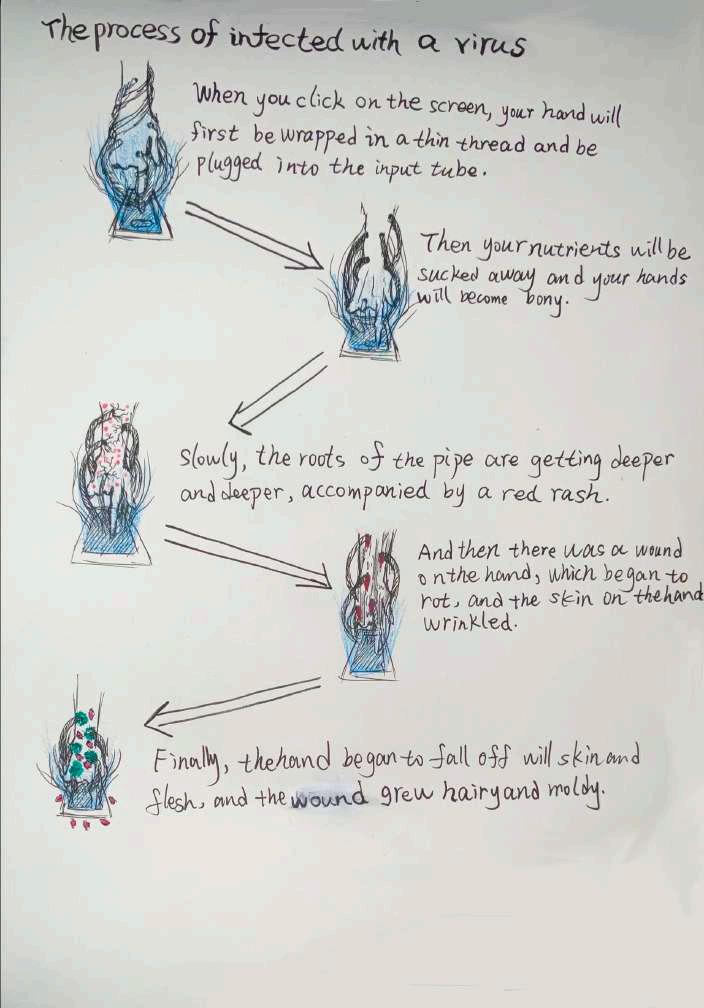 The process of infected with a virus
When you click on the screen, your hand will
first be wrapped in a thin thread and be
plugged into the input tube.
Then your nutrients will be
sucked away and your hands
will become bony.
Slowly, the roots of the pipe are getting deeper
and deeper, accompanied by a red rash.
And then there was a wound
on the hand, which began to
rot, and the skin on the hand
wrinkled.
Finally, the hand began to fall off will skin and
flesh, and the wound grew hairy and moldy.